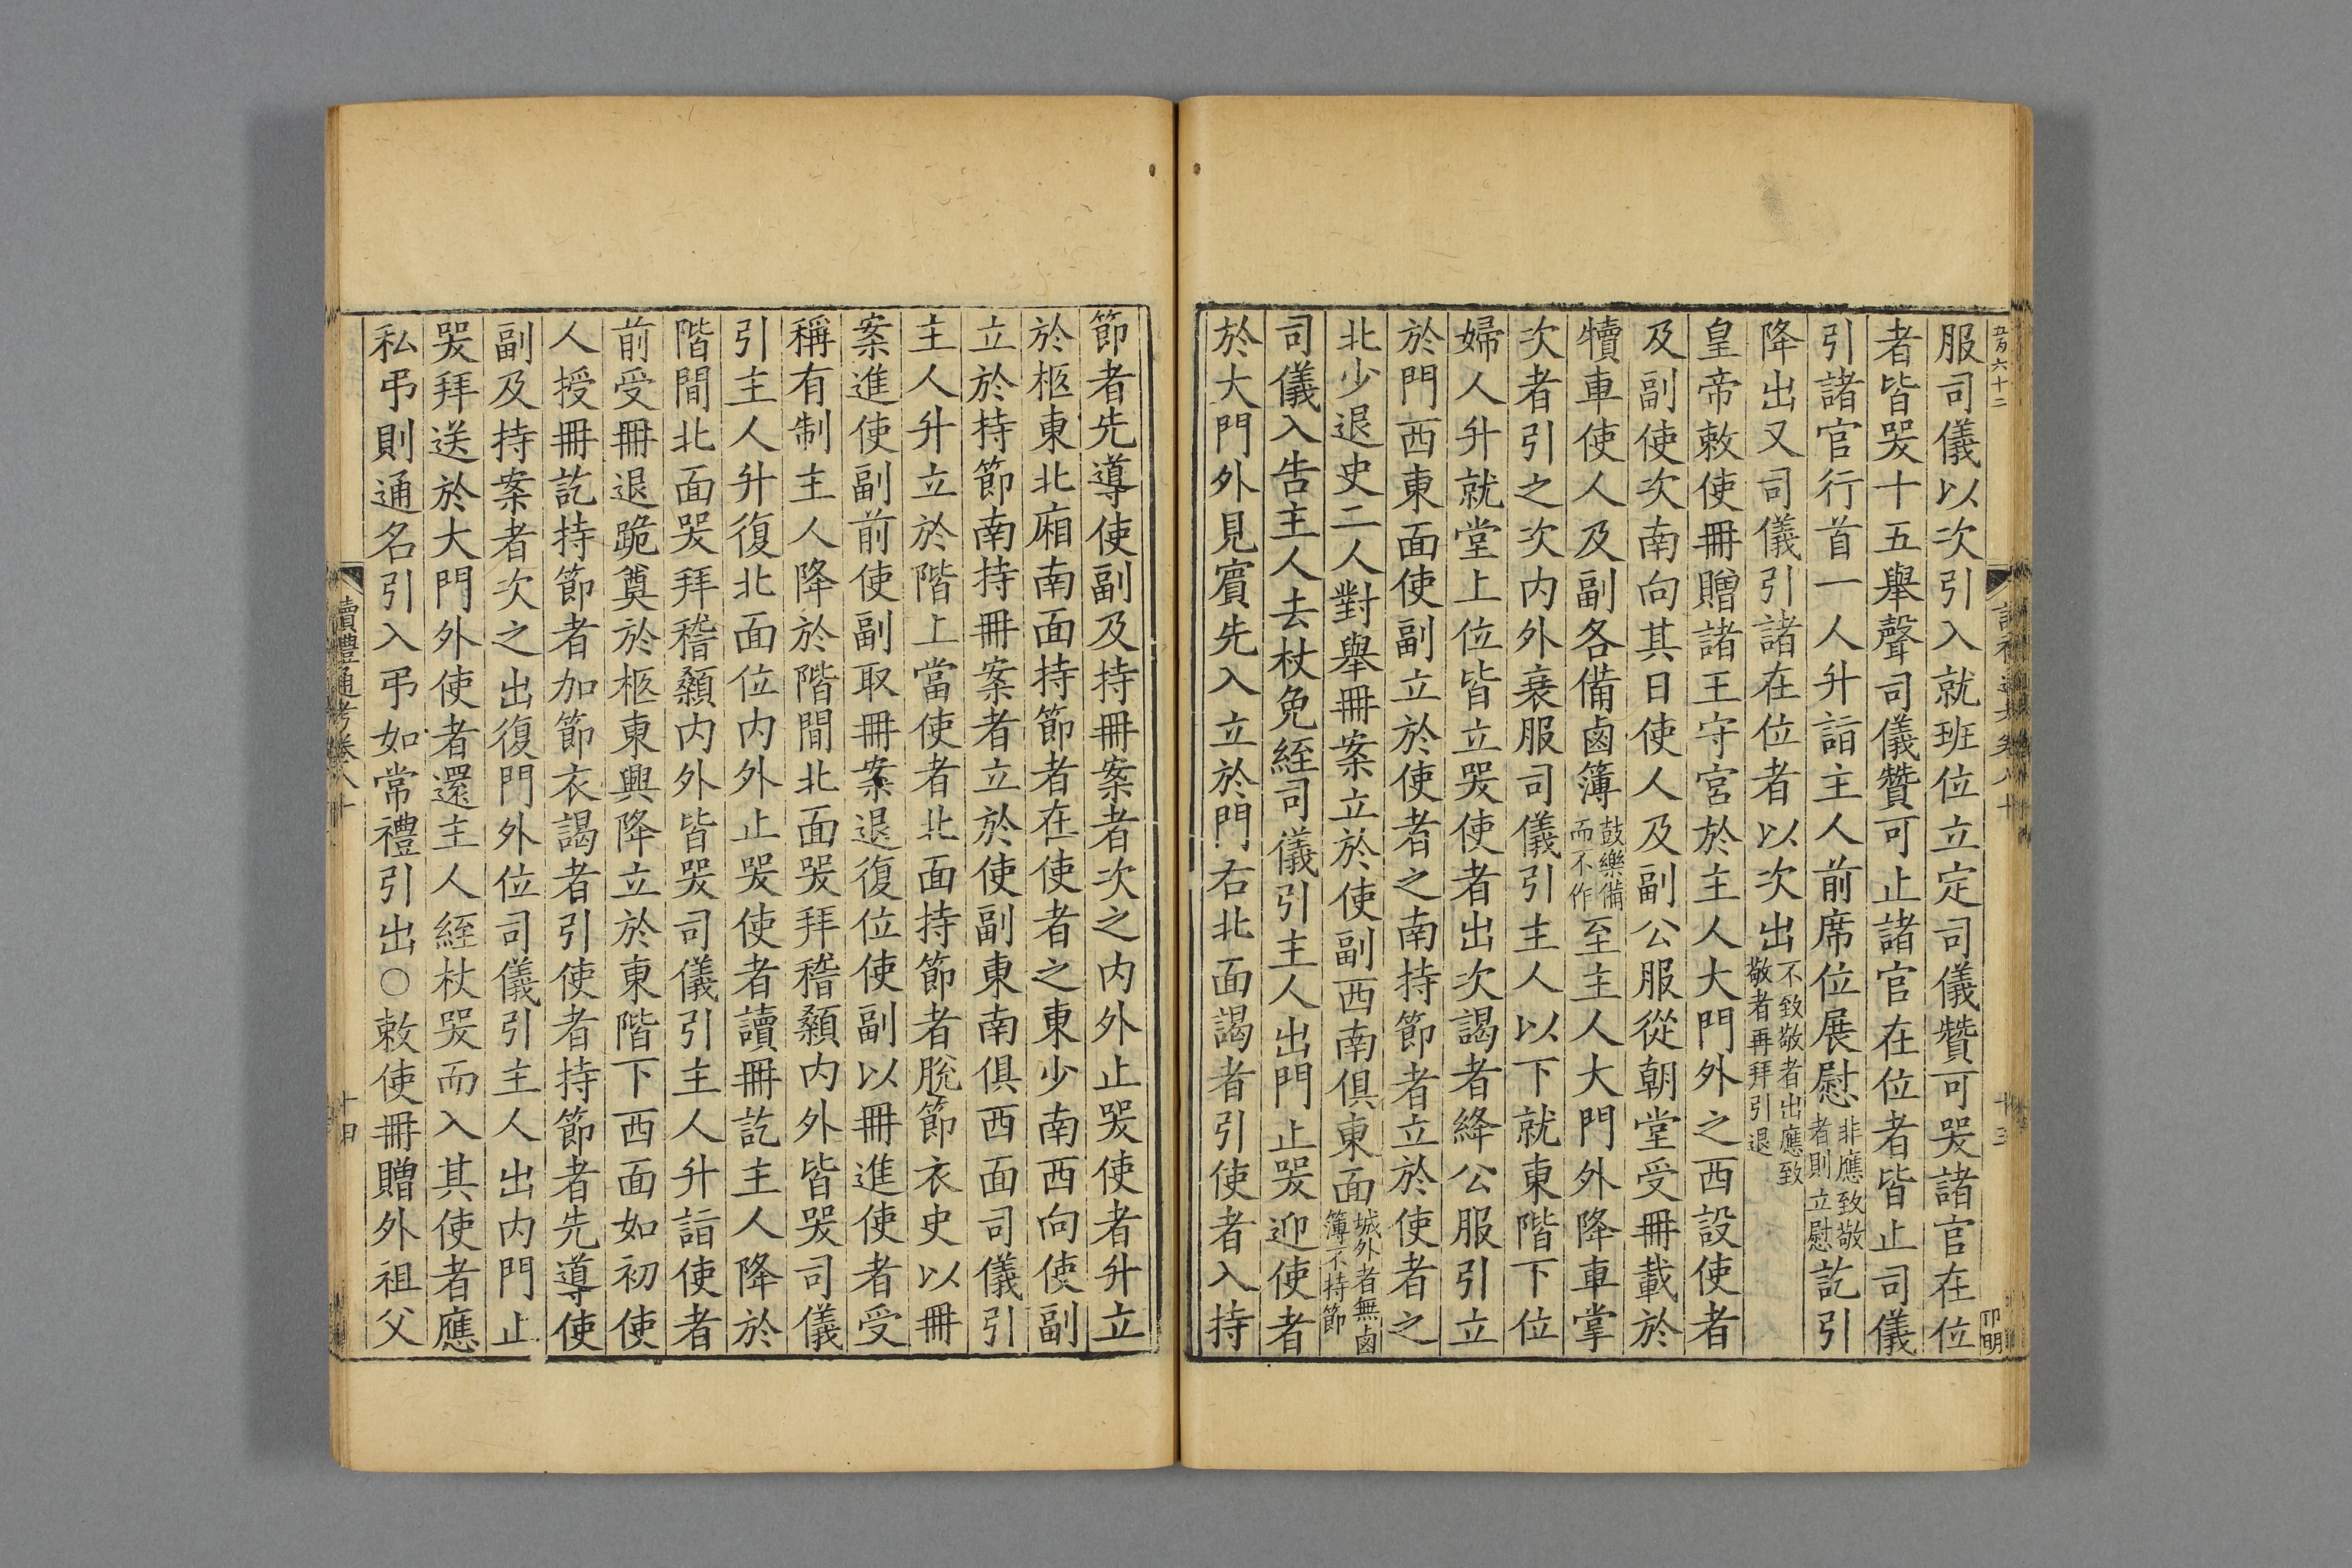 服司儀以次引入就班位立定司儀贊可哭諸官在位
者皆哭十五舉聲司儀贊可止諸官在位者皆止司儀
引諸官行首一人升詣主人前席位展慰非應致敬者則立慰訖引
降出又司儀引諸在位者以次出不致敬者出應致敬者再拜引退
皇帝敕使冊贈諸王守宮於主人大門外之西設使者
及副使次南向其日使人及副公服從朝堂受冊載於
犢車使人及副各備鹵簿鼓樂備而不作至主人大門外降車掌
次者引之次次內外衰服司儀引主人以下就東階下位
婦人升就堂上位皆立哭使者出次謁者絳公服引立
於門西東面使副立於使者之南持節者立於使者之
北少退史二人對舉冊案立於使副西南俱東面城外者無鹵簿不持節
司儀入告主人去杖免絰司儀引主人出門止哭迎使者
於大門外見賓先入立於門右北面謁者引使者入持
節者先導使副及持冊案者次之內外止哭使者升立
於柩東北廂南面持節者在使者之東少南西向使副
立於持節南持冊案者立於使副東南俱西面司儀引
主人升立於階上當使者北面持節者脫節衣史以冊
案進使副前使副取冊案退復位使副以冊進使者受
稱有制主人降於階間北面哭拜稽顙內外皆哭司儀
引主人升復北面位內外止哭使者讀冊訖主人降於
階間北面哭拜稽顙內外皆哭司儀引主人升詣使者
前受冊退跪奠於柩東興降立於東階下西面如初使
人授冊訖持節者加節衣謁者引使者持節者先導使
副及持案者次之出復門外位司儀引主人出內門止
哭拜送於大門外使者還主人絰杖哭而入其使者應
私弔則通名引入弔如常禮引出○敕使冊贈外祖父
讀禮通考卷八十